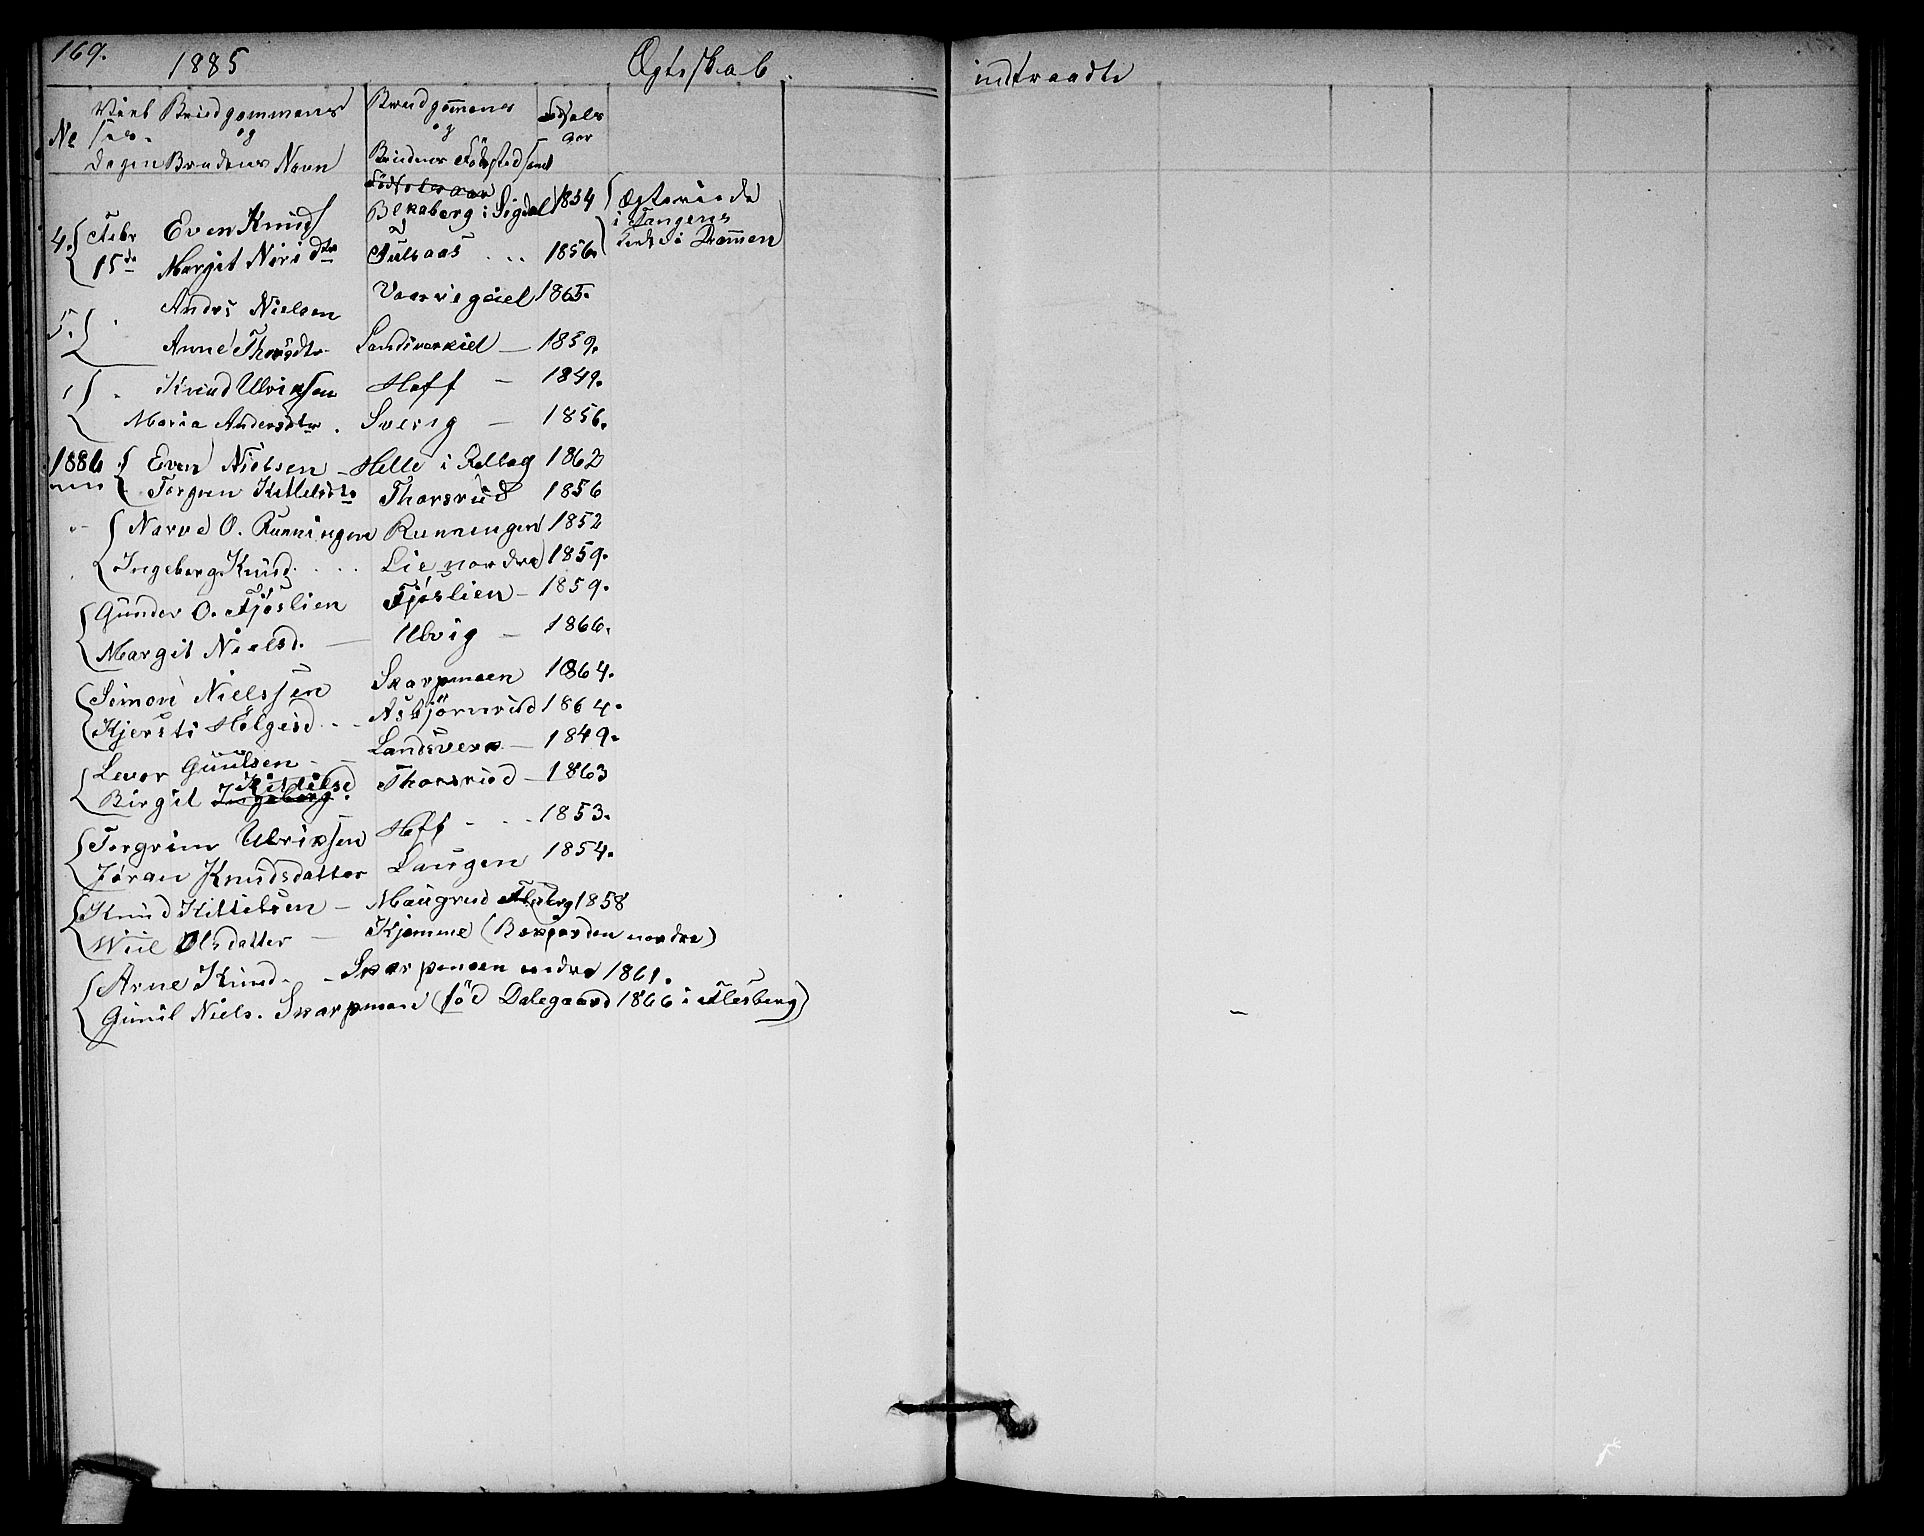 169. 1885 Ægtsskab indtraadte
No Dagen
Brudgommens og Brudens Navn
Brudgomens og Brudens Födested samt
Födselsaar
Födsels aar
4. Febr 15de Even Knuds Bekaberg i Sigdal 1854
Margit Niri Dtr Julsaas 1856.
Ægteviede
i Tangens
Kirke i Drammen
5. Andrs Nielsen 1865.
Anne Thorsdtr Landsverkiel 1859.
Knud Ulriksen Hoff 1849.
Maria Andersdtr. Sverig 1856.
1886 Even Nielsen Helle i Rollag 1862
Torgon Kittelsdtr Thorsrud 1856
Narve O. Runningen Runningen 1852
Ingeborg Knud. Lie nordre 1859.
Gunder O. Fjøslien Fjøslien 1859.
Margit Nielsd. Ulvig 1866.
Simon Nielssen Skarpmoen 1864.
Kjersti Helgesd. Asbjörnrud 1864.
Levor Guulsen Landsverk 1849.
Birgit Ingeborg Kittilsd. Thorsrud 1863
Torgrim Ulriksen Hoff 1853.
Jøran Knudsdatter Laugen 1854.
Knud Kittelsen Maugrud Flesberg 1858
Wiil Olsdatter Kjomme (Bekjorden nordre)
Arne Knud. Skarpmoen nedre 1861.
Gunil Niels. Skarpmoen (föd Dalegaard 1866 i Flesberg)